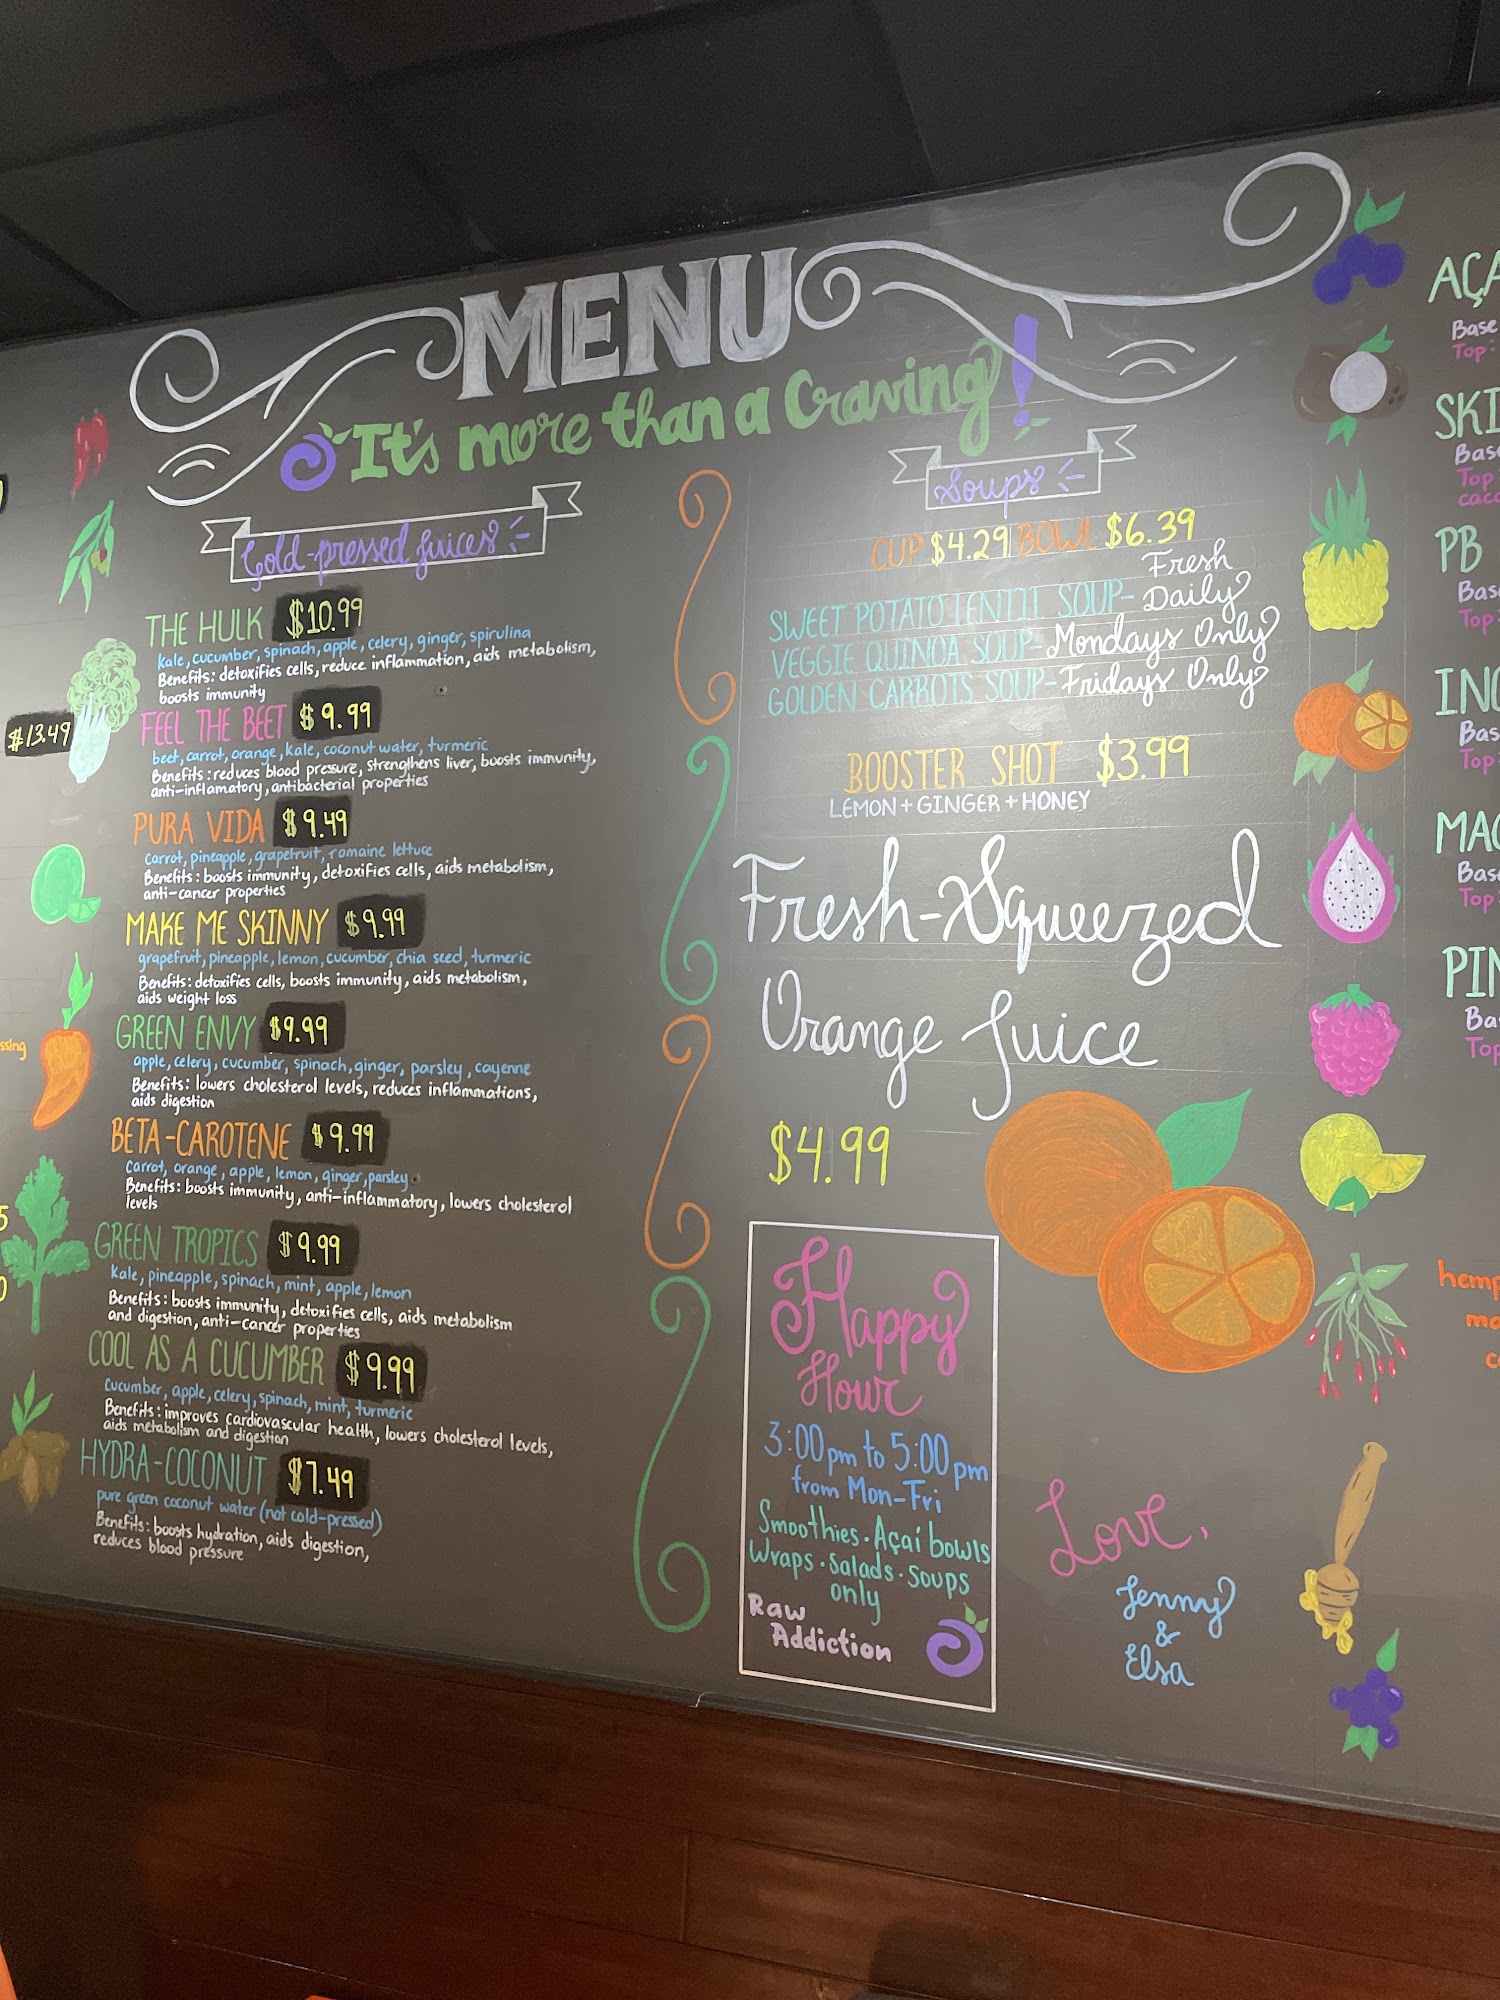 MENU
It's more than a Craving!
Cold-pressed Juices
THE HULK $10.99
kale, cucumber, spinach, apple, celery, ginger, spirulina
Benefits: detoxifies cells, reduce inflammation, aids metabolism,
boosts immunity
FEEL THE BEET $9.99
beet, carrot, orange, kale, coconut water, turmeric
Benefits: reduces blood pressure, strengthens liver, boosts immunity,
anti-inflamatory, antibacterial properties
PURA VIDA $9.49
carrot, pineapple, grapefruit, romaine lettuce
Benefits: boosts immunity, detoxifies cells, aids metabolism,
anti-cancer properties
MAKE ME SKINNY $9.99
grapefruit, pineapple, lemon, cucumber, chia seed, turmeric
Benefits: detoxifies cells, boosts immunity, aids metabolism,
aids weight loss
GREEN ENVY $9.99
apple, celery, cucumber, spinach, ginger, parsley, cayenne
Benefits: lowers cholesterol levels, reduces inflammations,
aids digestion
BETA-CAROTENE $9.99
carrot, orange, apple, lemon, ginger, parsley
Benefits: boosts immunity, anti-inflammatory, lowers cholesterol
levels
GREEN TROPICS $9.99
kale, pineapple, spinach, mint, apple, lemon
Benefits: boosts immunity, detoxifies cells, aids metabolism
and digestion, anti-cancer properties
COOL AS A CUCUMBER $9.99
cucumber, apple, celery, spinach, mint, turmeric
Benefits: improves cardiovascular health, lowers cholesterol levels,
aids metabolism and digestion
HYDRA-COCONUT $7.49
pure green coconut water (not cold-pressed)
Benefits: boosts hydration, aids digestion,
reduces blood pressure
$13.49
Soups
CUP $4.29 BOWL $6.39
SWEET POTATO LENTIL SOUP- Fresh Daily
VEGGIE QUINOA SOUP- Mondays Only
GOLDEN CARROTS SOUP- Fridays Only
BOOSTER SHOT $3.99
LEMON + GINGER + HONEY
Fresh-Squeezed
Orange Juice
$4.99
Happy
Hour
3:00pm to 5:00pm
from Mon-Fri
Smoothies · Açaí bowls
Wraps · Salads · Soups
only
Raw
Addiction
Love,
Jenny
&
Elsa
Base
Top:
Top
PB
Top:
Top
hemp